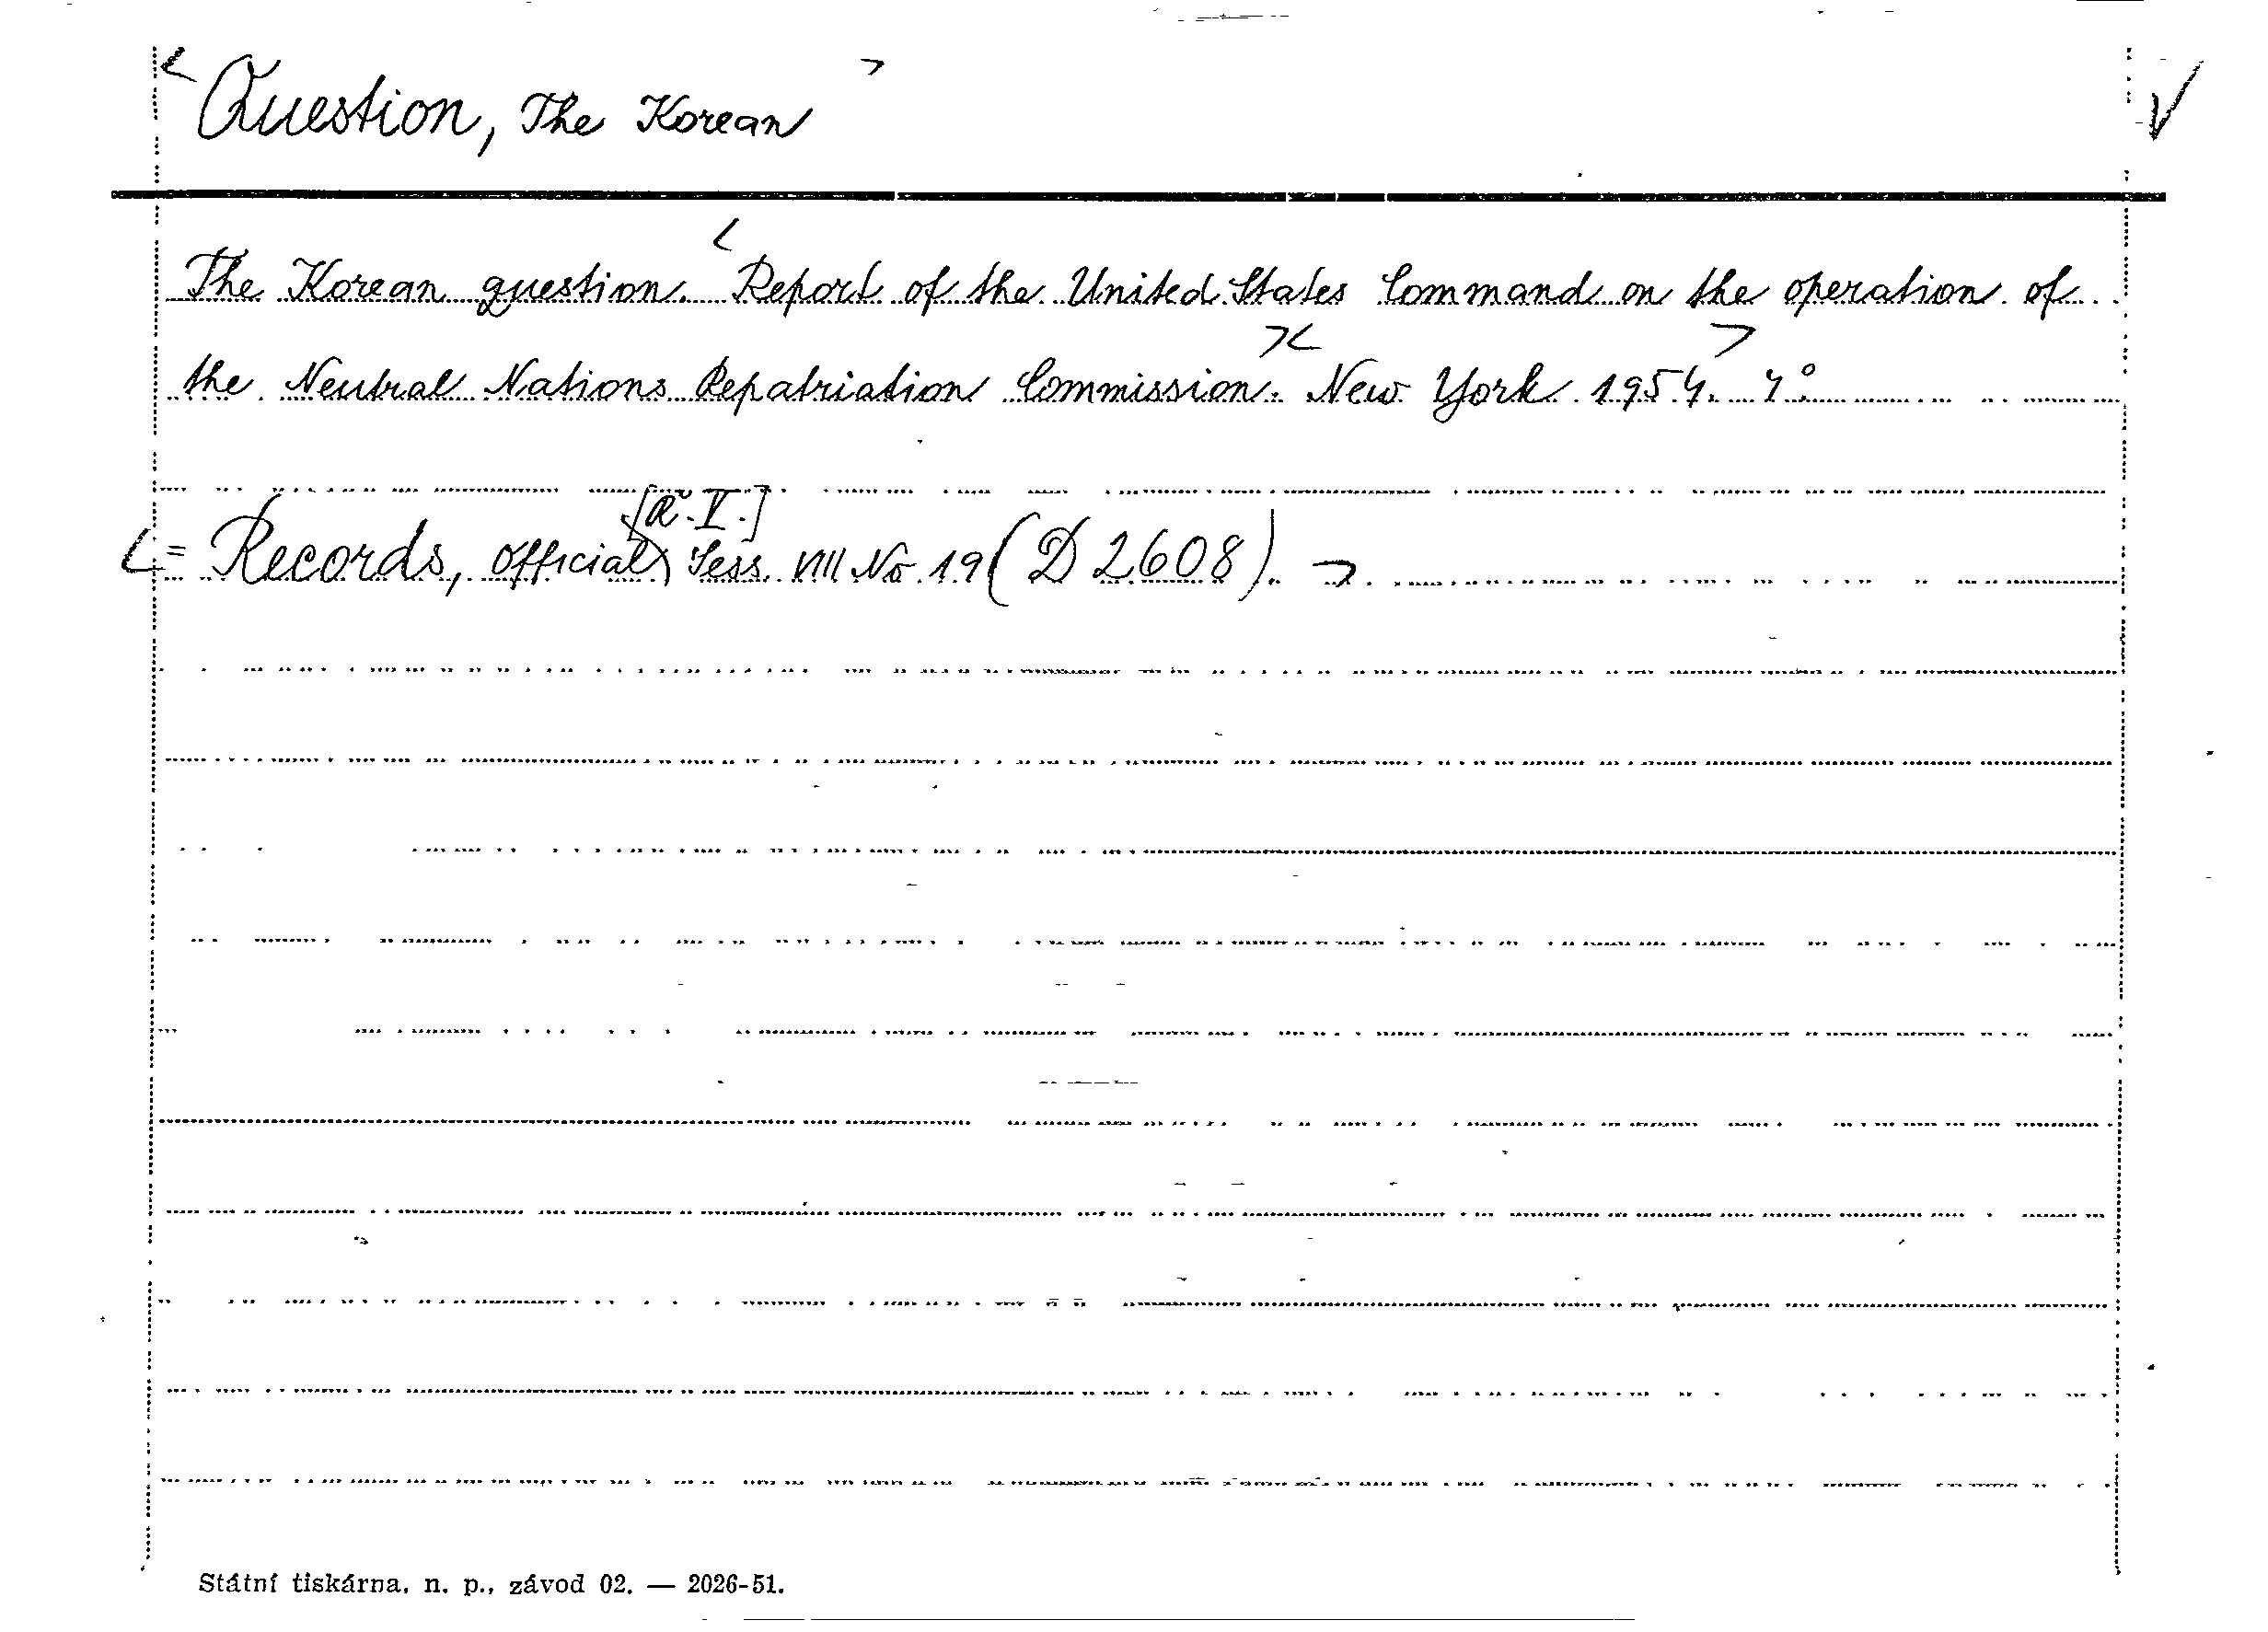 Question, The Korean
The Korean question. Report of the United States Command on the operation of
the Neutral Nations Repatriation Commission. New York 1954. 4°
[Ř. V.]
= Records, official Sess. VIII No 19 (D 2608).
Státní tiskárna, n. p., závod 02. — 2026-51.